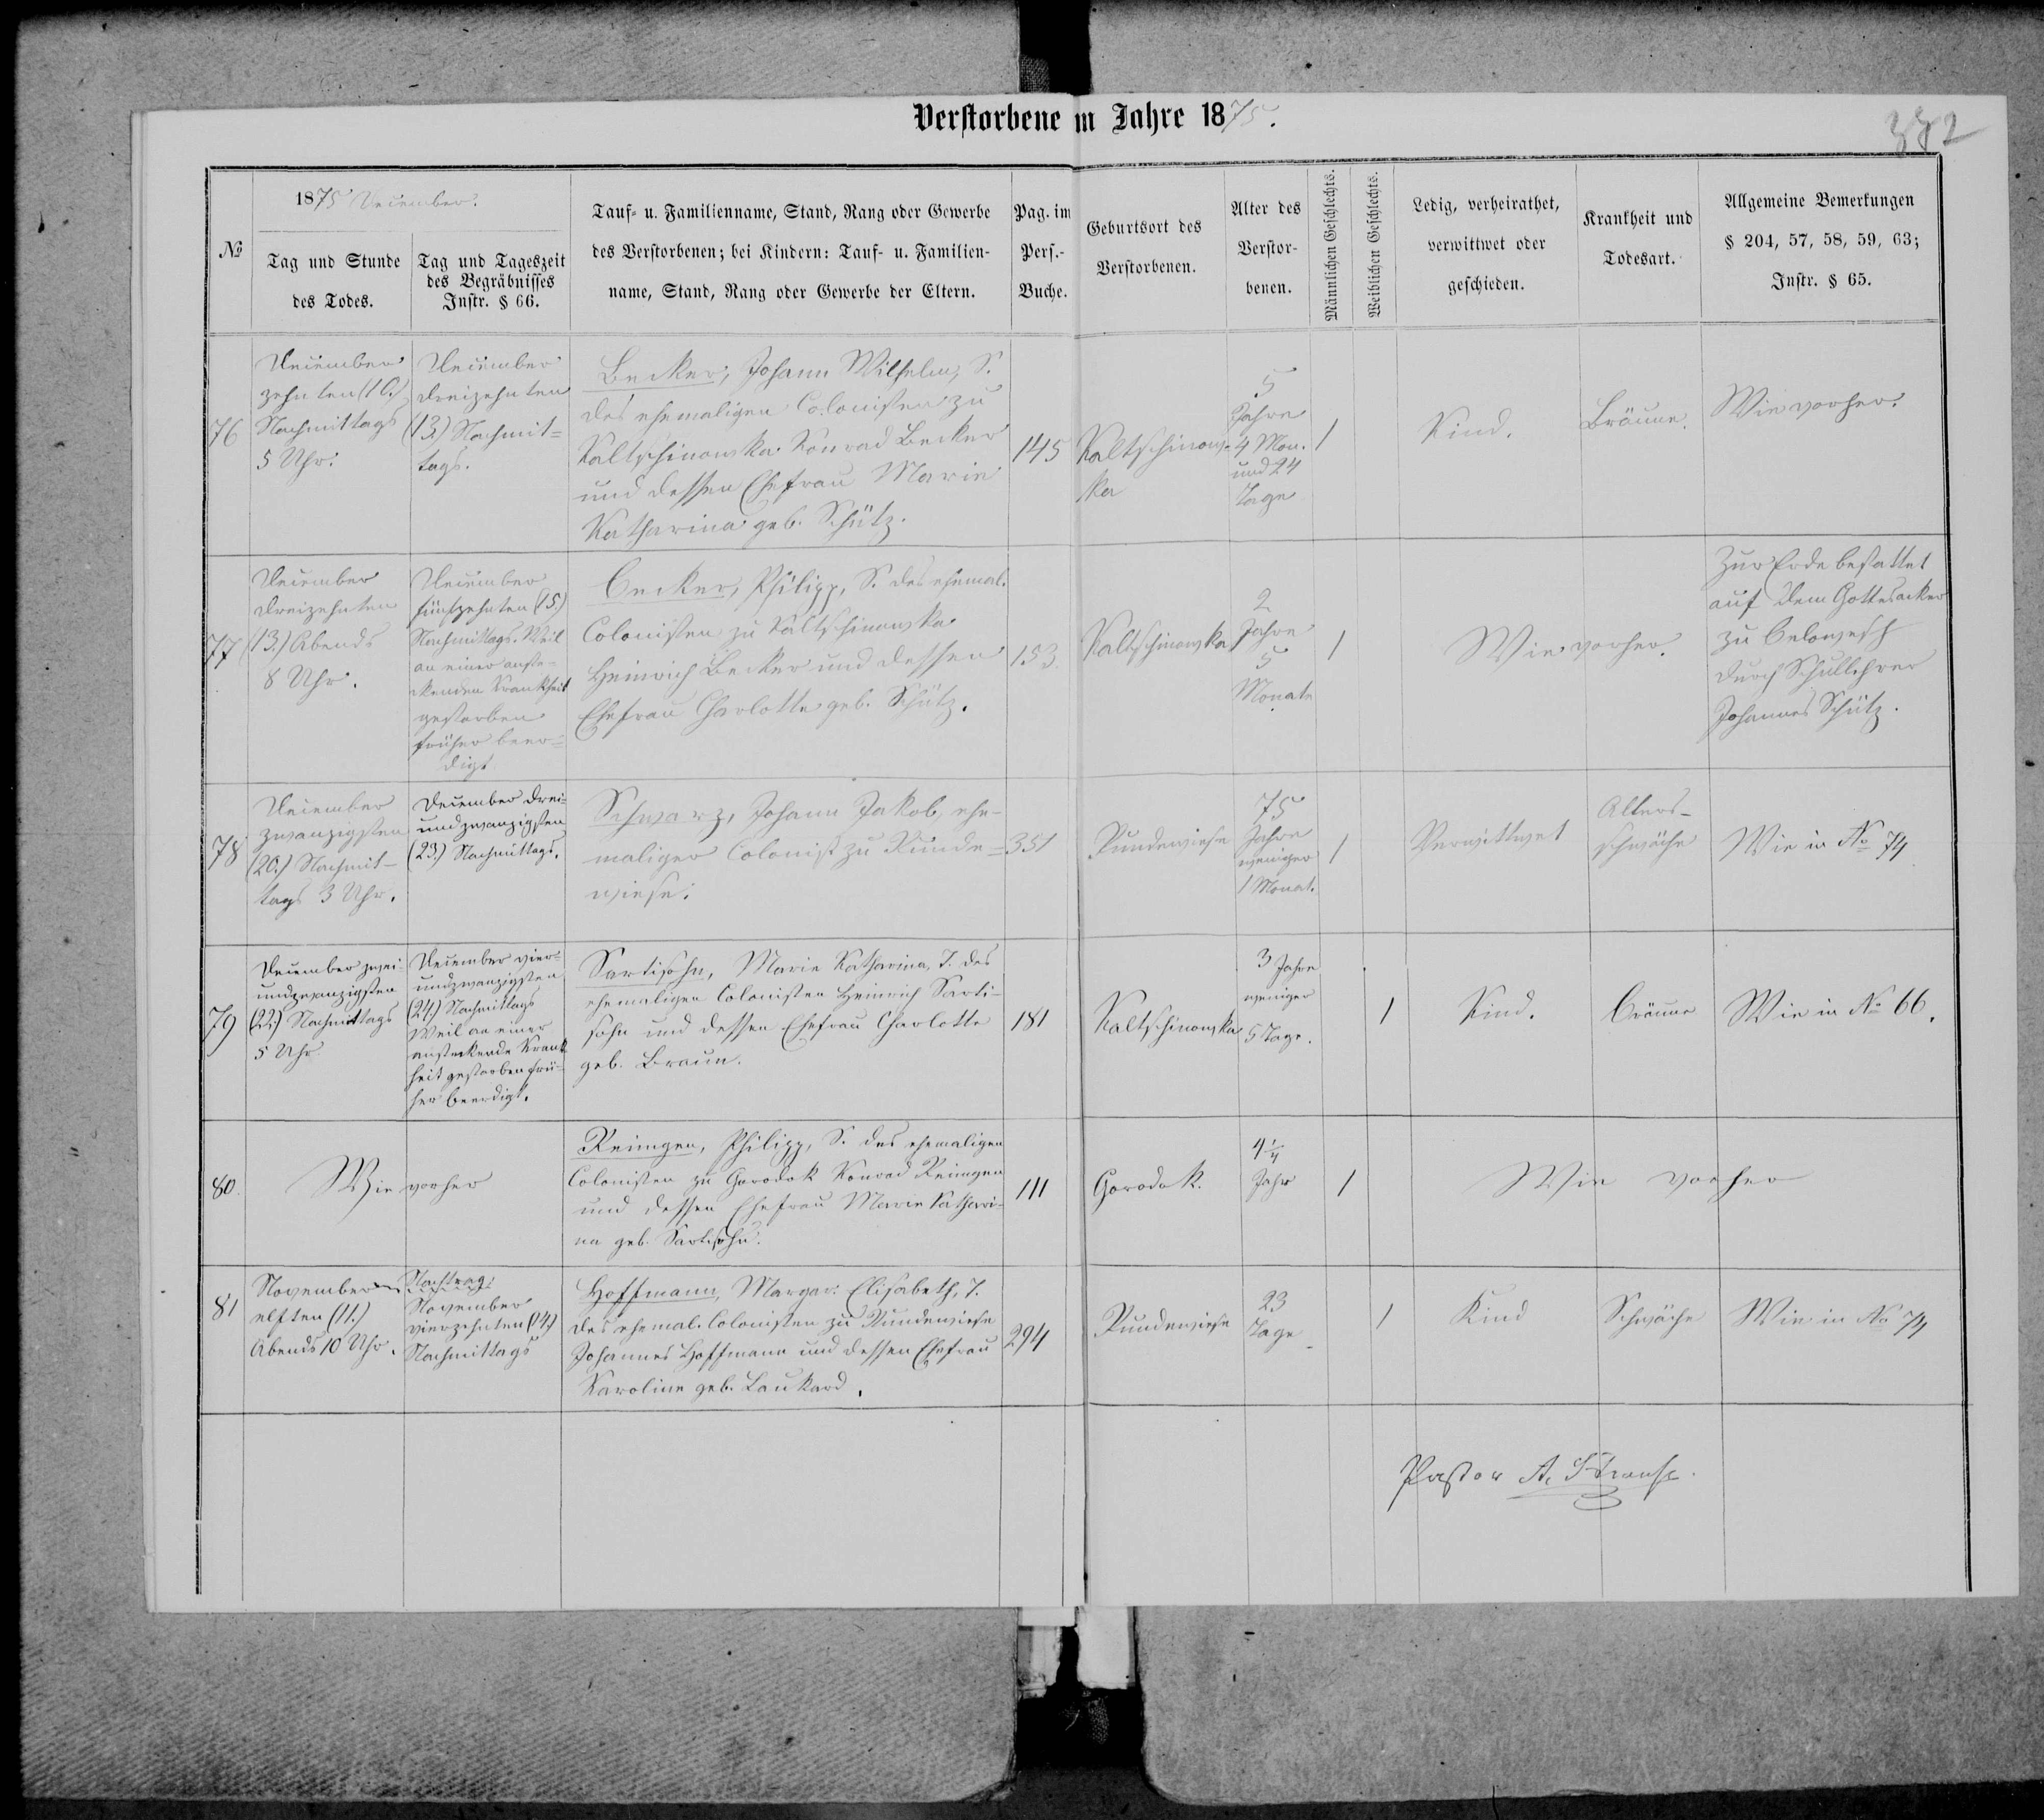 Verstorbene im Jahre 1875.
382
№
1875 December.
Tag und Stunde
des Todes.
Tag und Tageszeit
des Begräbnisses
Instr. § 66.
Tauf- u. Familienname, Stand, Rang oder Gewerbe
des Verstorbenen; bei Kindern: Tauf- u. Familien-
name, Stand, Rang oder Gewerbe der Eltern.
Pag. im
Pers.-
Buche.
Geburtsort des
Verstorbenen.
Alter des
Verstor-
benen.
Männlichen Geschlechts.
Weiblichen Geschlechts.
Ledig, verheirathet,
verwittwet oder
geschieden.
Krankheit und
Todesart.
Allgemeine Bemerkungen
§ 204, 57, 58, 59, 63;
Instr. § 65.
76
December
zehnten (10.)
Nachmittags
5 Uhr.
December
dreizehnten
(13.) Nachmit-
tags.
Becker, Johann Wilhelm, S.
des ehemaligen Colonisten zu
Kaltschinowka Konrad Becker
und dessen Ehefrau Marie
Katharina geb. Schütz.
145
Kaltschinow-
ka
5
Jahre
4 Mon.
und 24
Tage
1
Kind.
Bräune.
Wie vorher.
77
December
dreizehnten
(13.) Abends
8 Uhr.
December
fünfzehnten (15.)
Nachmittags. Weil
an einer anste-
ckenden Krankheit
gestorben
früher beer-
digt
Becker, Philipp, S. des ehemal.
Colonisten zu Kaltschinowka
Heinrich Becker und dessen
Ehefrau Charlotte geb. Schütz.
153
Kaltschinowka
2
Jahre
5
Monate
1
Wie vorher.
Zur Erde bestattet
auf dem Gottesacker
zu Belowesch
durch Schullehrer
Johannes Schütz.
78
December
zwanzigsten
(20.) Nachmit-
tags 3 Uhr.
December drei-
undzwanzigsten
(23.) Nachmittags.
Schwarz, Johann Jakob, ehe-
maliger Colonist zu Runde-
wiese.
351
Rundewiese
75
Jahre
weniger
1 Monat.
1
Verwittwet
Alters-
schwäche
Wie in № 74
79
December zwei-
undzwanzigsten
(22.) Nachmittags
5 Uhr
December vier-
undzwanzigsten
(24.) Nachmittags
Weil an einer
ansteckende Krank
heit gestorben frü-
her beerdigt.
Sartisohn, Marie Katharina, T. des
ehemaligen Colonisten Heinrich Sarti-
sohn und dessen Ehefrau Charlotte
geb. Braun.
181
Kaltschinowka
3 Jahre
weniger
5 Tage.
1
Kind.
Bräune
Wie in № 66.
80.
Wie vorher
Reimgen, Philipp, S. des ehemaligen
Colonisten zu Gorodok Konrad Reimgen
und dessen Ehefrau Marie Kathari-
na geb. Sartisohn.
111
Gorodok.
4 1/4
Jahr
1
Wie vorher
81
November
elften (11.)
Abends 10 Uhr.
Nachtrag:
November
vierzehnten (14.)
Nachmittags
Hoffmann, Margar. Elisabeth, T.
des ehemal. Colonisten zu Rundewiese
Johannes Hoffmann und dessen Ehefrau
Karoline geb. Laukard.
294
Rundewiese
23
Tage
1
Kind
Schwäche
Wie in № 74
Pastor A.